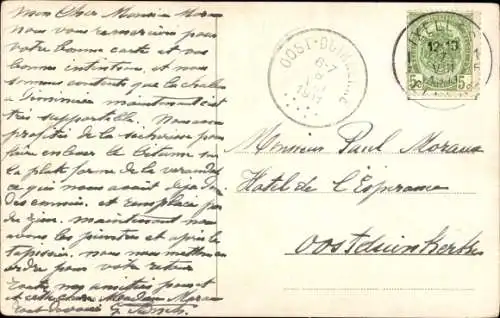 Mon Cher Monsieur Moraux
nous vous remercions pour
votre bonne carte et vos
bonne intention, et nous
sommes contents que la chaleur
a diminuée maintenant est
très supportable. Nous avons
profités de la sécheresse pour
faire enlever le bitume sur
la plate forme de la verandah
ce qui nous avait déja
des ennuis, et remplacé par
du zinc. maintenant nous
avons les peintres et après le
tapissier, nous nous mettons en
ordre pour votre retour
toute nos amitiés pour
et cette chère Madame Moraux
tout dévoué
OOST-DUINKERKE
6-7
1911
12-13
1911
5c 5c
Monsieur Paul Moraux
Hotel de l'Esperance
Oostduinkerke